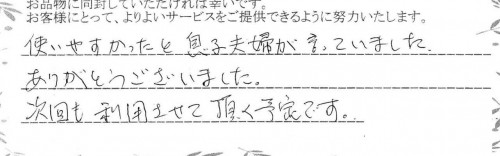 お品物に同封していただければ幸いです。
お客様にとって、よりよいサービスをご提供できるように努力いたします。
使いやすかったと息子夫婦が言っていました。
ありがとうございました。
次回も利用させて頂く予定です。